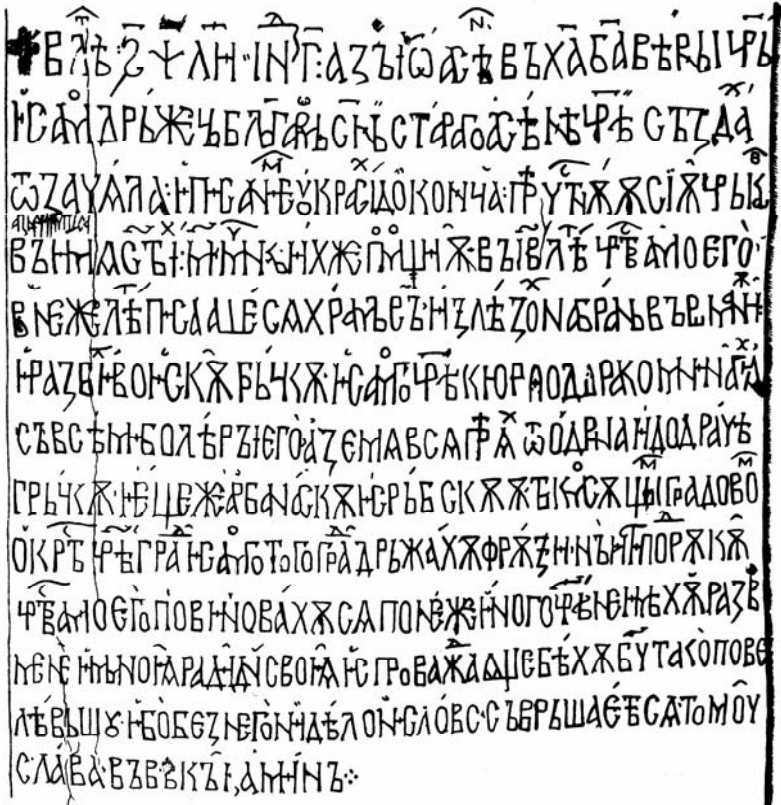 ✝ В лѣт ҂Ѕ Ѱ Л И · ІНД Г : АЗЪ ІѠ АСѢН ВЪ ХА БА ВѢРЫІ ЦРЬ
И САМОДРЬЖЕЦЬ БЛГАРѠМЬ СНЬ СТАРАГО АСѢНѢ ЦРѢ СЪЗДАХ
Ѿ ЗАЧАЛА · И ПСАНЕМ ОУКРАСИХ ДОКОНЧА · ПРЧСТНѪѪ СІѪ ЦРЬКВ
ВЪ ИМА СТЫ : Х : М : МЧНКЪ ИХЖЕ ПОМОЩИѪ · ВЪ ІВ ЛѢТ ЦРСТВА МОЕГО ·
В НЕЖЕ ЛѢТ ПСААШЕСА ХРАМЬ СЪ · ИЗЛѢЗОХ НА БРАНЬ ВЪ РѠМАНИѪ
И РАЗБИХ ВОИСКѪ ГРЬЧКѪ · И САМОГО ЦРѢ КЮРА ѲОДѠРА КОМНИНА ѨХ
СЪ ВСѢМИ БОЛѢРЫ ЕГО · А ЗЕМѦ ВСѦ ПРѢѦХ Ѿ ОДРИНА И ДО ДРАЧѢ
ГРЬЧКѪ · И ЕЩЕ ЖЕ АРБАНАСКѪ И СРЬБСКѪѪ · ТЪКМО СѪЩЫМ ГРАДОВОМ
ОКРСТЬ ЦРѢГРАДА И САМОГО ТОГО ГРАДА ДРЬЖАХѪ ФРѪЗИ · НЪ И ТИ ПО РѪКѪ
ЦРСТВА МОЕГО ПОВИНОВАХѪСА ПОНЕЖЕ ИНОГО ЦРѢ НЕ ИМѢХѪ РАЗВ
МЕНЕ И МЬНОѪ РАДИ ДНИ СВОѪ ИСПРОВАЖДААЩЕ БѢХѪ БУ ТАКО ПОВЕ
ЛѢВЬШУ · ИБО БЕЗ НЕГО НИ ДѢЛО НИ СЛОВО СЪВРЬШАЕТСА ТОМОУ
СЛАВА ВЪ ВѢКЫ, АМИНЪ ⁘